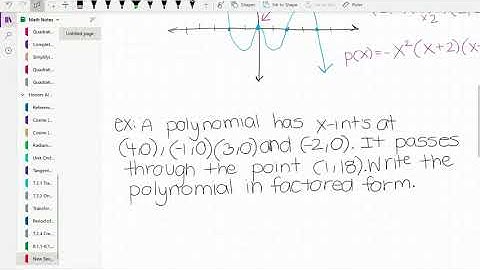 Shapes
Ink to Shape
Math Notes
Untitled page
Quadrat
Complet
Simplifyi
Quadrat
Quadrat
Honors Al
Referenc
Cosine L
Cosine L
Radian
Unit Circl
Tangent
7.2.1 Tra
Transfor
Period of
7.2.4 Cre
8.1.1-8.1.
New Sec
x²
p(x)=-x²(x+2)(x-
ex: A polynomial has x-ints at
(4,0), (-1,0)(3,0) and (-2,0). It passes
through the point (1,18). Write the
polynomial in factored form.